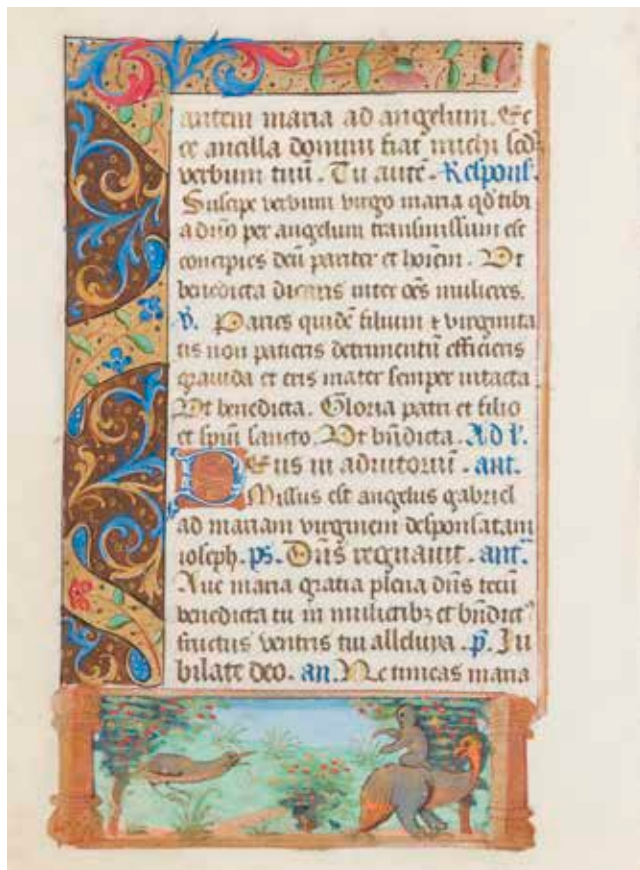 autem maria ad angelum. Ec
ce ancilla domini fiat michi scd̄m
verbum tuū. Tu autē. Respons.
Suscipe verbum virgo maria qd̄ tibi
a dn̄o per angelum transmissum est
concipies deū pariter et hoīem. Vt
benedicta dicaris inter oēs mulieres.
v̄. Paries quidē filium et virginita
tis non patieris detrimentū efficieris
gravida et eris mater semper intacta
Vt benedicta. Gloria patri et filio
et spiū sancto. Vt bn̄dicta. Ad p̄.
Deus in adiutoriū. ant.
Missus est angelus gabriel
ad mariam virginem desponsatam
ioseph. ps. Dn̄s regnavit. ant.
Ave maria gratia plena dn̄s tecū
benedicta tu in mulieribꝫ et bn̄dictꝰ
fructus ventris tui alleluya. p̄. Iu
bilate deo. an. Ne timeas maria